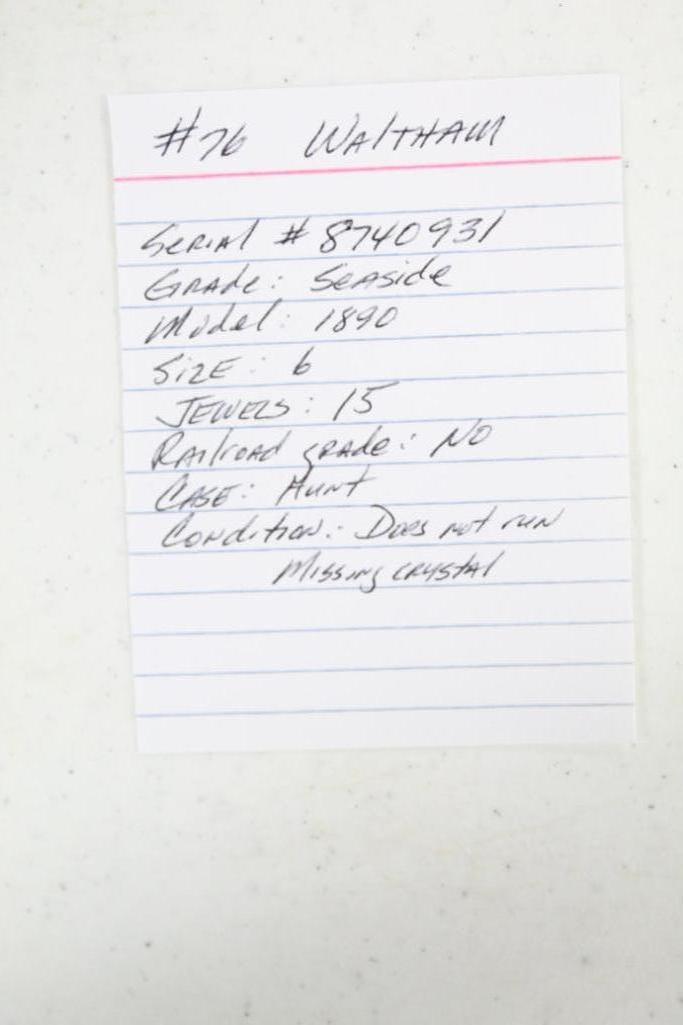 #76 Waltham
Serial # 8740931
Grade: Seaside
Model: 1890
Size: 6
Jewels: 15
Railroad grade: No
Case: Hunt
Condition: Does not run
Missing crystal